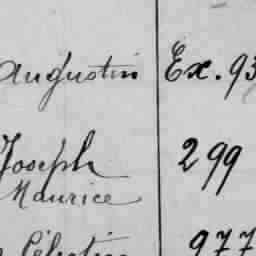 Augustin Ex. 93
Joseph 299
Maurice
Célestin 977